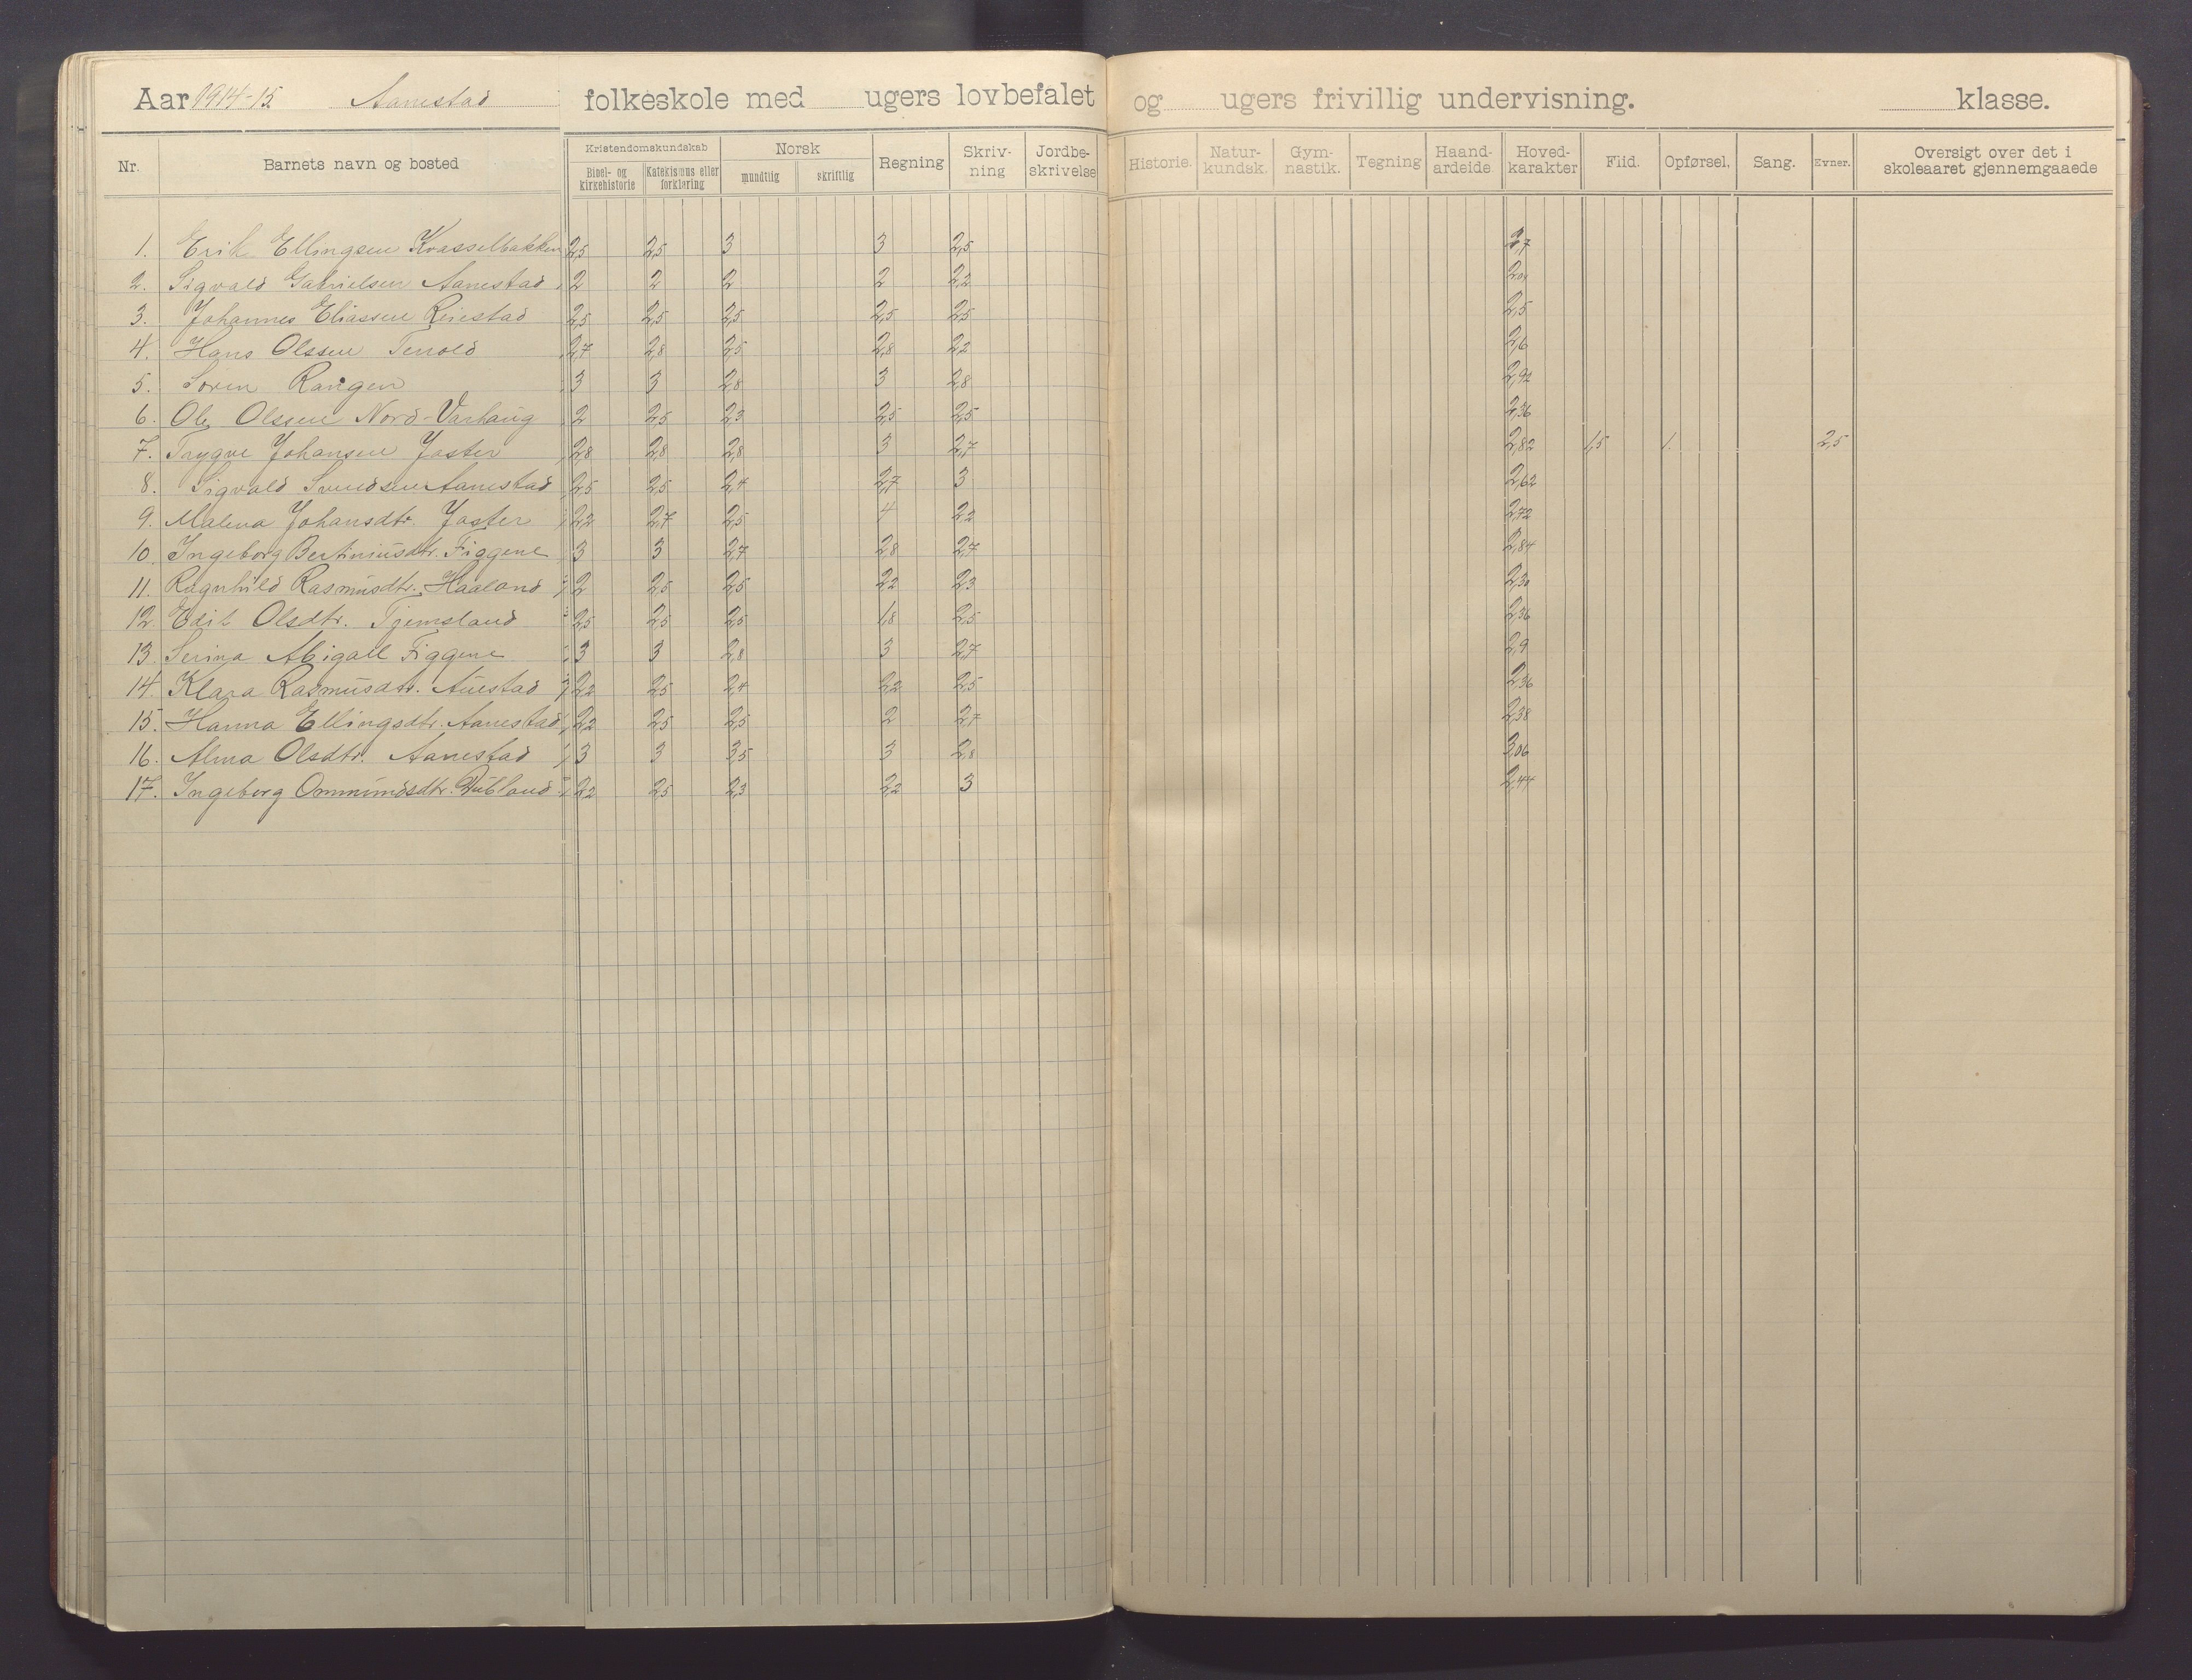 Aar 1914-15. Aanestad folkeskole med ugers lovbefalet og ugers frivillig undervisning. klasse.
Nr. Barnets navn og bosted Kristendomskundskab Bibel- og kirkehistorie Katekismus eller forklaring Norsk mundtlig skriftlig Regning Skriv-ning Jordbe-skrivelse Historie. Natur-kundsk. Gym-nastik. Tegning Haand-arbeide Hoved-karakter Flid. Opførsel. Sang. Evner. Oversigt over det i skoleaaret gjennemgaaede
1. Erik Ellingsen Kvasselbakken 2,5 2,5 3 3 2,5 2,7
2. Sigvald Gabrielsen Aanestad 2 2 2 2 2,2 2,04
3. Johannes Eliassen Reiestad 2,5 2,5 2,5 2,5 2,5 2,5
4. Hans Olssen 2,7 2,8 2,5 2,8 2,2 2,6
5. Soren Rangen 3 3 2,8 3 2,8 2,92
6. Ole Olssen Nord-Varhaug 2 2,5 2,3 2,5 2,5 2,36
7. Trygve Johansen Joster 2,8 2,8 2,8 3 2,7 2,82 1,5 1. 2,5
8. Sigvald Svendsen Aanestad 2,5 2,5 2,4 2,7 3 2,62
9. Malena Johansdtr. Joster 2,2 2,7 2,5 4 2,2 2,72
10. Ingeborg Bertiniusdtr. Figgene 3 3 2,7 2,8 2,7 2,84
11. Ragnhild Rasmusdtr. Haaland 2 2,5 2,5 2,2 2,3 2,30
12. Edit Olsdtr. Tjemsland 2,5 2,5 2,5 1,8 2,5 2,36
13. Serina Abigael Figgene 3 3 2,8 3 2,7 2,9
14. Klara Rasmusdtr. Auestad 2,2 2,5 2,4 2,2 2,5 2,36
15. Hanna Ellingsdtr. Aanestad 2,2 2,5 2,5 2 2,7 2,38
16. Alma Olsdtr. Aanestad 3 3 3,5 3 2,8 3,06
17. Ingeborg Ommundsdtr. Dubland 2,2 2,5 2,3 2,2 3 2,44